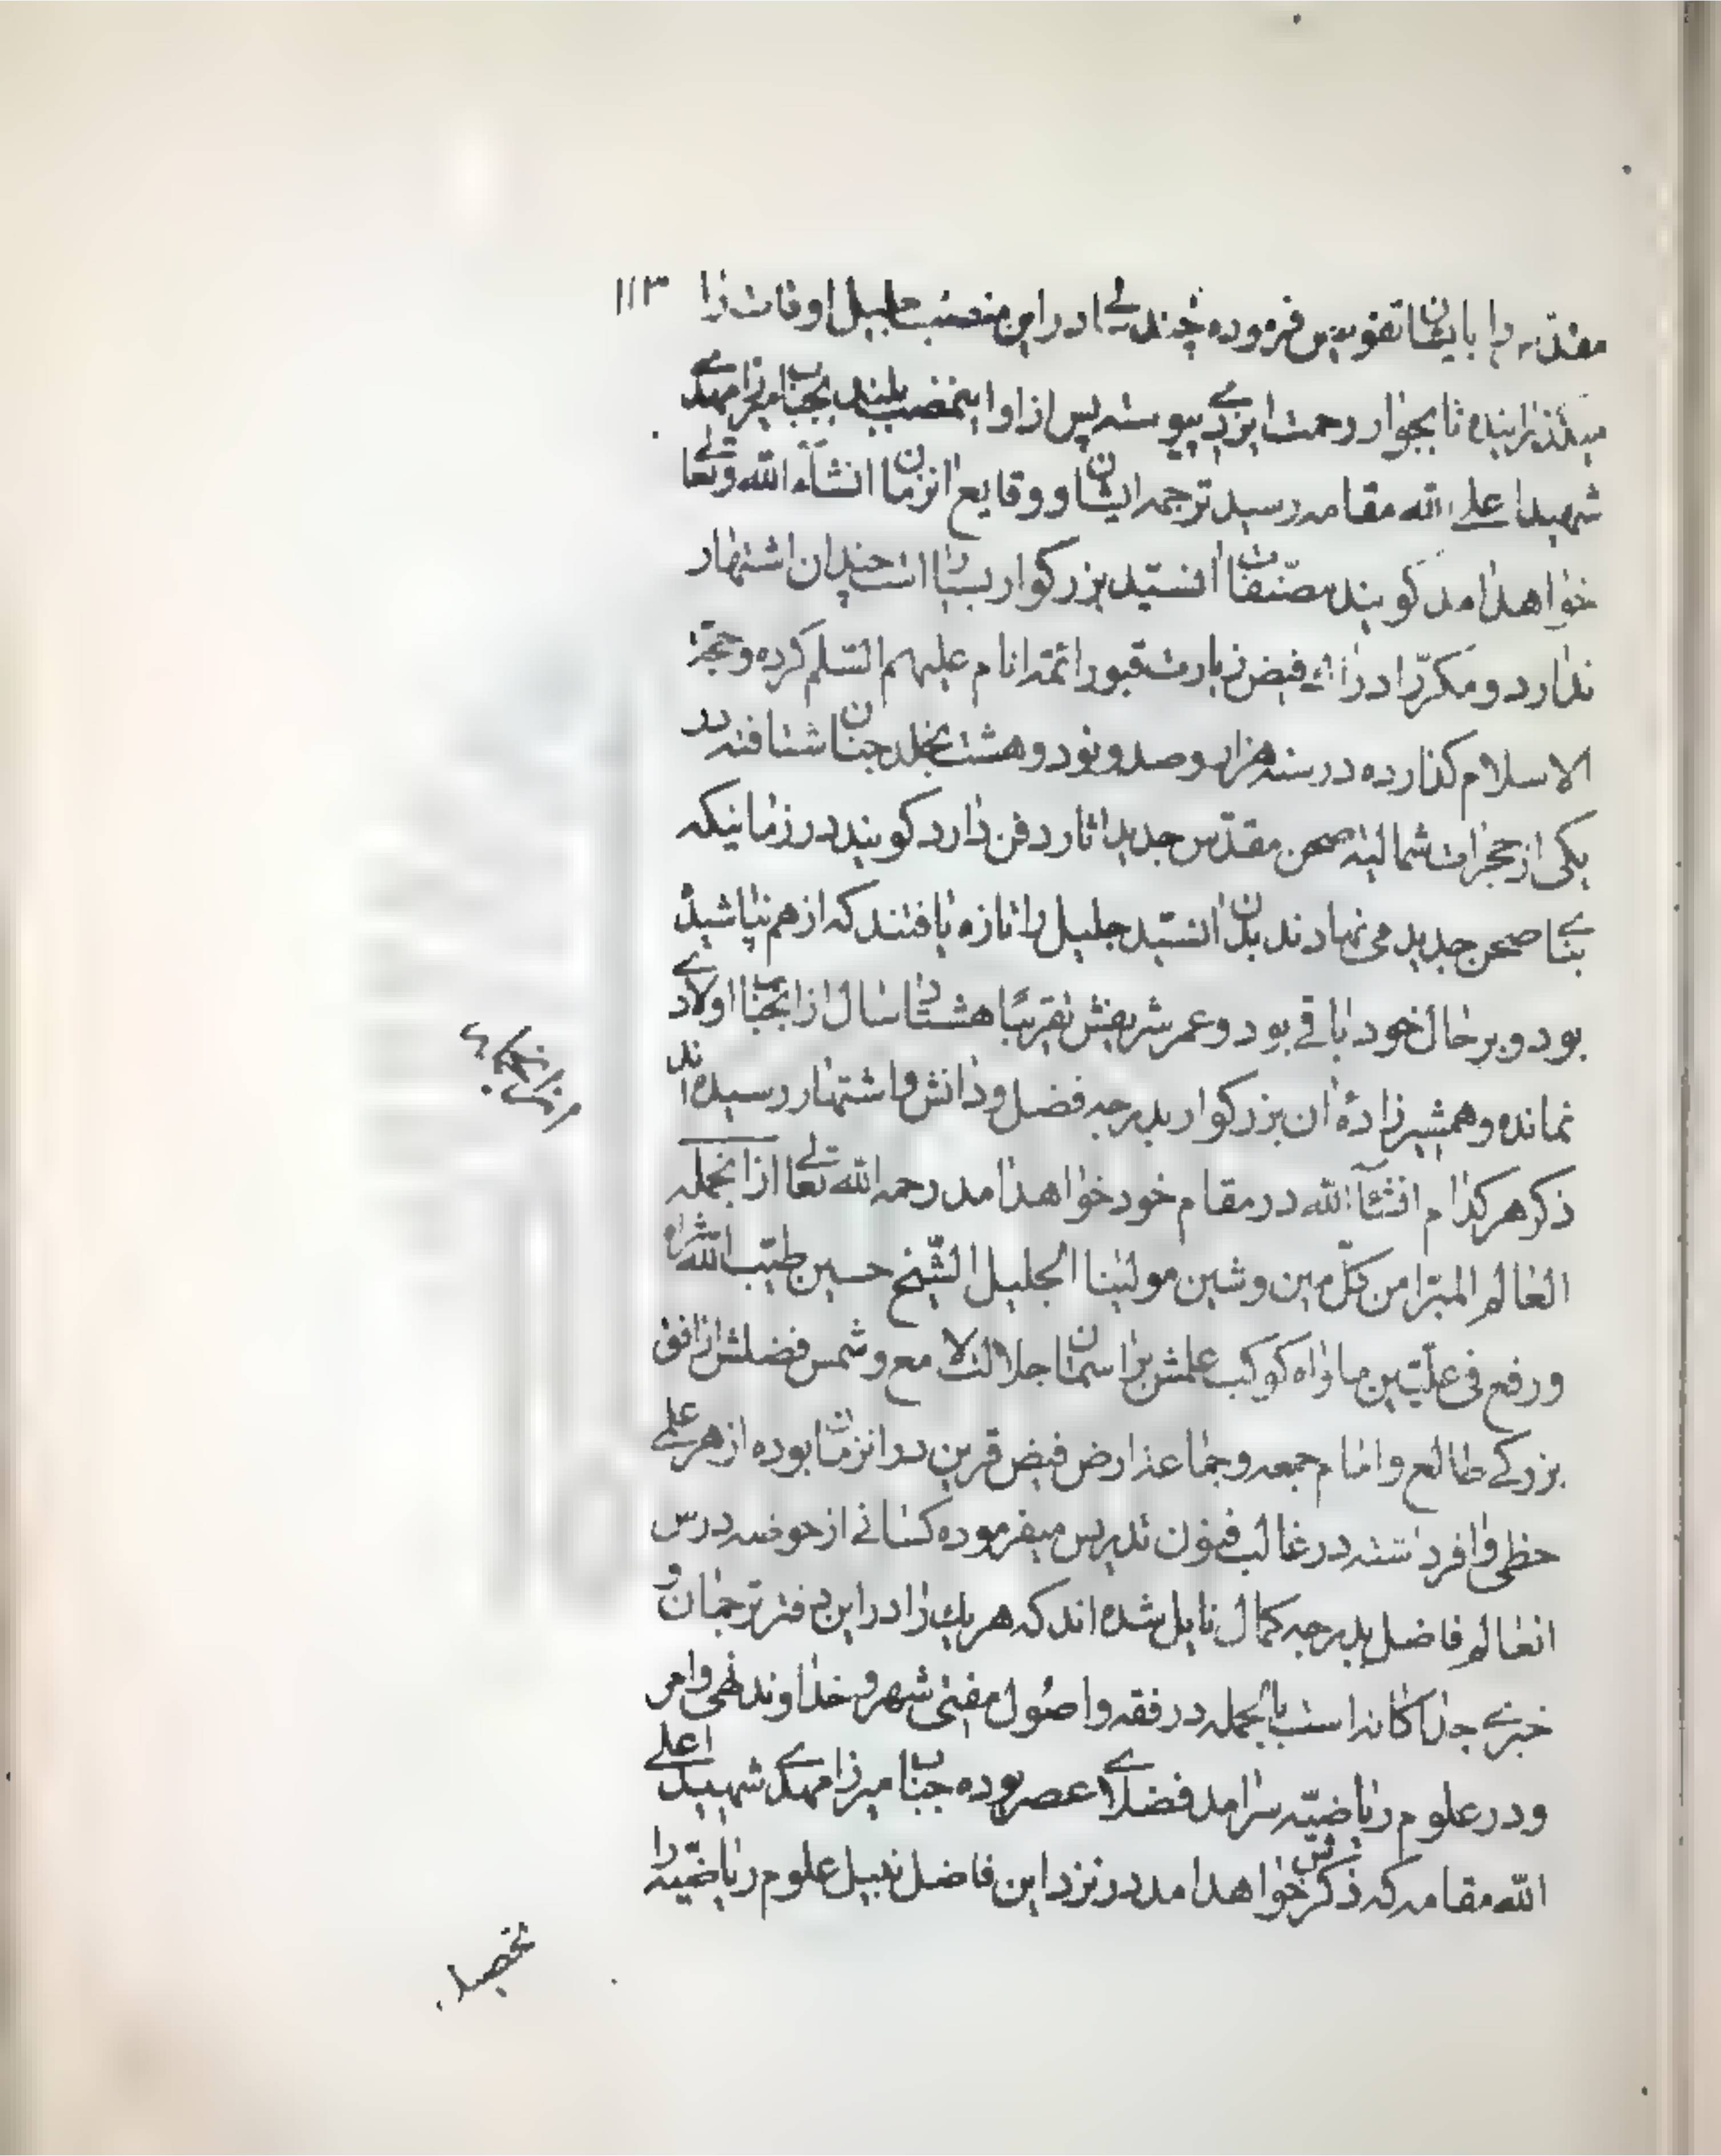 ۱۱۳
مقدسه را بایشان تفویض فرموده چند سالی در این منصب جلیل اوقات را
میگذرانیده تا بجوار رحمت ایزدی پیوسته پس از او اینمنصب بلند بجناب میرزا مهدی
شهید اعلی الله مقامه رسید ترجمه ایشان و وقایع انزمان انشآء الله تعالی
خواهد امد کویند مصنّفات انسیّد بزرکوار بسیار است چندان اشتهار
ندارد و مکرّر ادراک فیض زیارت قبور ائمّه انام علیهم السّلم کرده و حجّة
الاسلام کذارده در سنه هزار و صد و نود و هشت بخلد جنان شتافته در
یکی از حجرات شمالیّه صحن مقدّس جدید اثار دفن دارد کویند در زمانیکه
بنای صحن جدید می نهادند بدن انسیّد جلیل را تازه یافتند که از هم نپاشیده
بود و بر حال خود باقی بود و عمر شریفش تقریبًا هشتاد سال از انجناب اولادی
نمانده و همشیرزادهٔ ان بزرکوار بدرجه فضل و دانش و اشتهار رسیده اند
ذکر هر کدام انشآء الله در مقام خود خواهد امد رحمه الله تعالی از انجمله
العالم المبرّا من کلّ مین و شین مولینا الجلیل الشّیخ حسین طیّب الله ثراه
و رفع فی علّیّین ماواه کوکب علمش بر اسمان جلالت لامع و شمس فضلش از افق
بزرکی طالع و امام جمعه و جماعة ارض فیض قرین در انزمان بوده از هر علمی
حظی وافر داشته در غالب فنون تدریس میفرموده کسانی از حوضه درس
انعالم فاضل بدرجه کمال نایل شده اند که هر یک را در این دفتر ترجمان و
خبری جداکانه است بالجمله در فقه و اصول مفتی شهر و خداوند نهی و امر
و در علوم ریاضیّه سرامد فضلای عصر بوده جناب میرزا مهدی شهید اعلی
الله مقامه که ذکرش خواهد امد در نزد این فاضل نبیل علوم ریاضیّه را
تحصیل